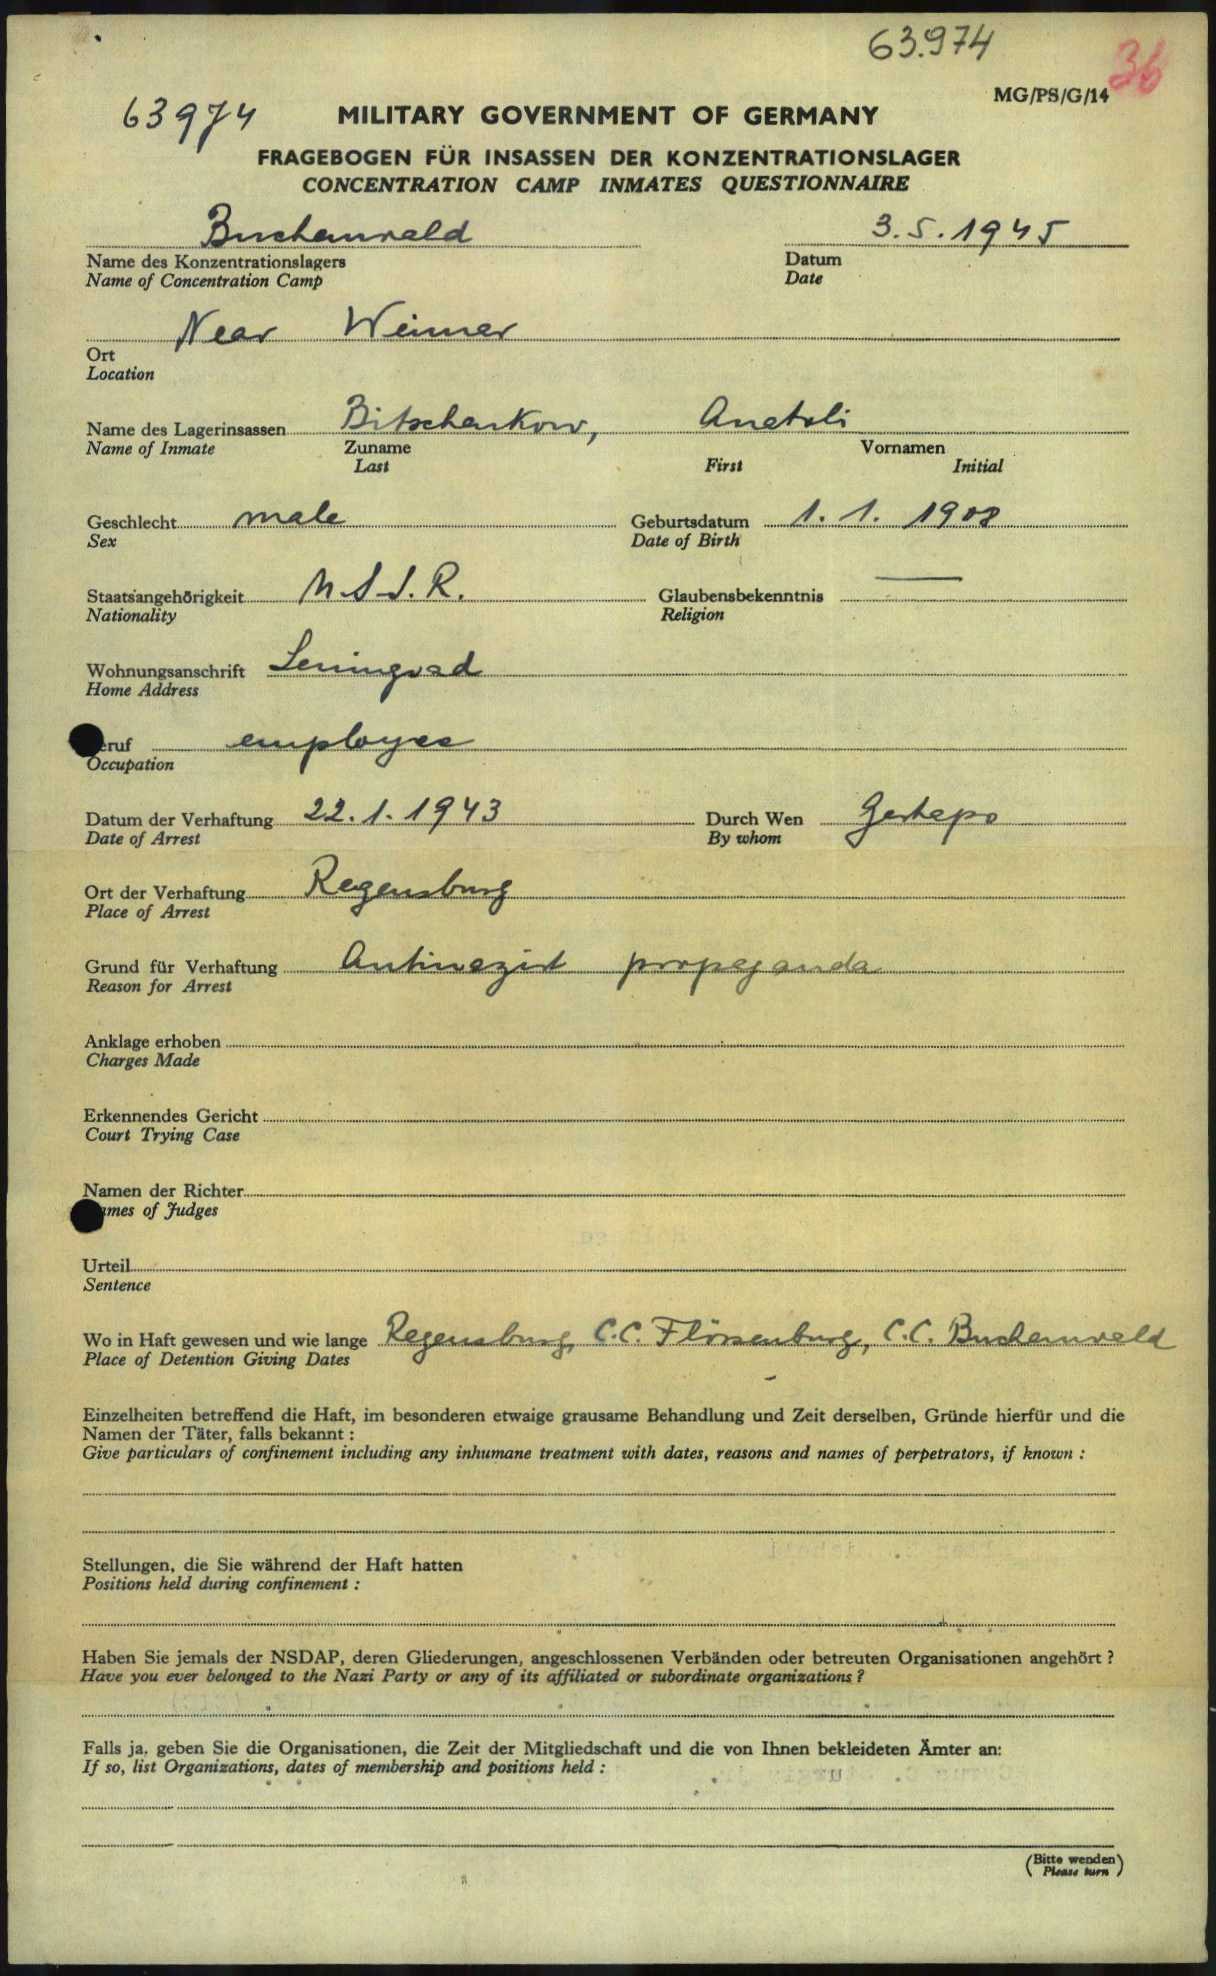 63.974
36
MG/PS/G/14
63974
MILITARY GOVERNMENT OF GERMANY
FRAGEBOGEN FÜR INSASSEN DER KONZENTRATIONSLAGER
CONCENTRATION CAMP INMATES QUESTIONNAIRE
Buchenwald 3.5.1945
Name des Konzentrationslagers Datum
Name of Concentration Camp Date
Near Weimar
Ort
Location
Name des Lagerinsassen Bitschenkow, Anatoli
Name of Inmate Zuname Vornamen
Last First Initial
Geschlecht male Geburtsdatum 1. 1. 1908
Sex Date of Birth
Staatsangehörigkeit U.S.S.R. Glaubensbekenntnis —
Nationality Religion
Wohnungsanschrift Leningrad
Home Address
eruf employee
Occupation
Datum der Verhaftung 22.1.1943 Durch Wen Gestapo
Date of Arrest By whom
Ort der Verhaftung Regensburg
Place of Arrest
Grund für Verhaftung Antinazist propaganda
Reason for Arrest
Anklage erhoben
Charges Made
Erkennendes Gericht
Court Trying Case
Namen der Richter
ames of Judges
Urteil
Sentence
Wo in Haft gewesen und wie lange Regensburg, C.C. Flörsenburg, C.C. Buchenwald
Place of Detention Giving Dates
Einzelheiten betreffend die Haft, im besonderen etwaige grausame Behandlung und Zeit derselben, Gründe hierfür und die
Namen der Täter, falls bekannt :
Give particulars of confinement including any inhumane treatment with dates, reasons and names of perpetrators, if known :
Stellungen, die Sie während der Haft hatten
Positions held during confinement :
Haben Sie jemals der NSDAP, deren Gliederungen, angeschlossenen Verbänden oder betreuten Organisationen angehört ?
Have you ever belonged to the Nazi Party or any of its affiliated or subordinate organizations ?
Falls ja, geben Sie die Organisationen, die Zeit der Mitgliedschaft und die von Ihnen bekleideten Ämter an:
If so, list Organizations, dates of membership and positions held :
(Bitte wenden)
Please turn